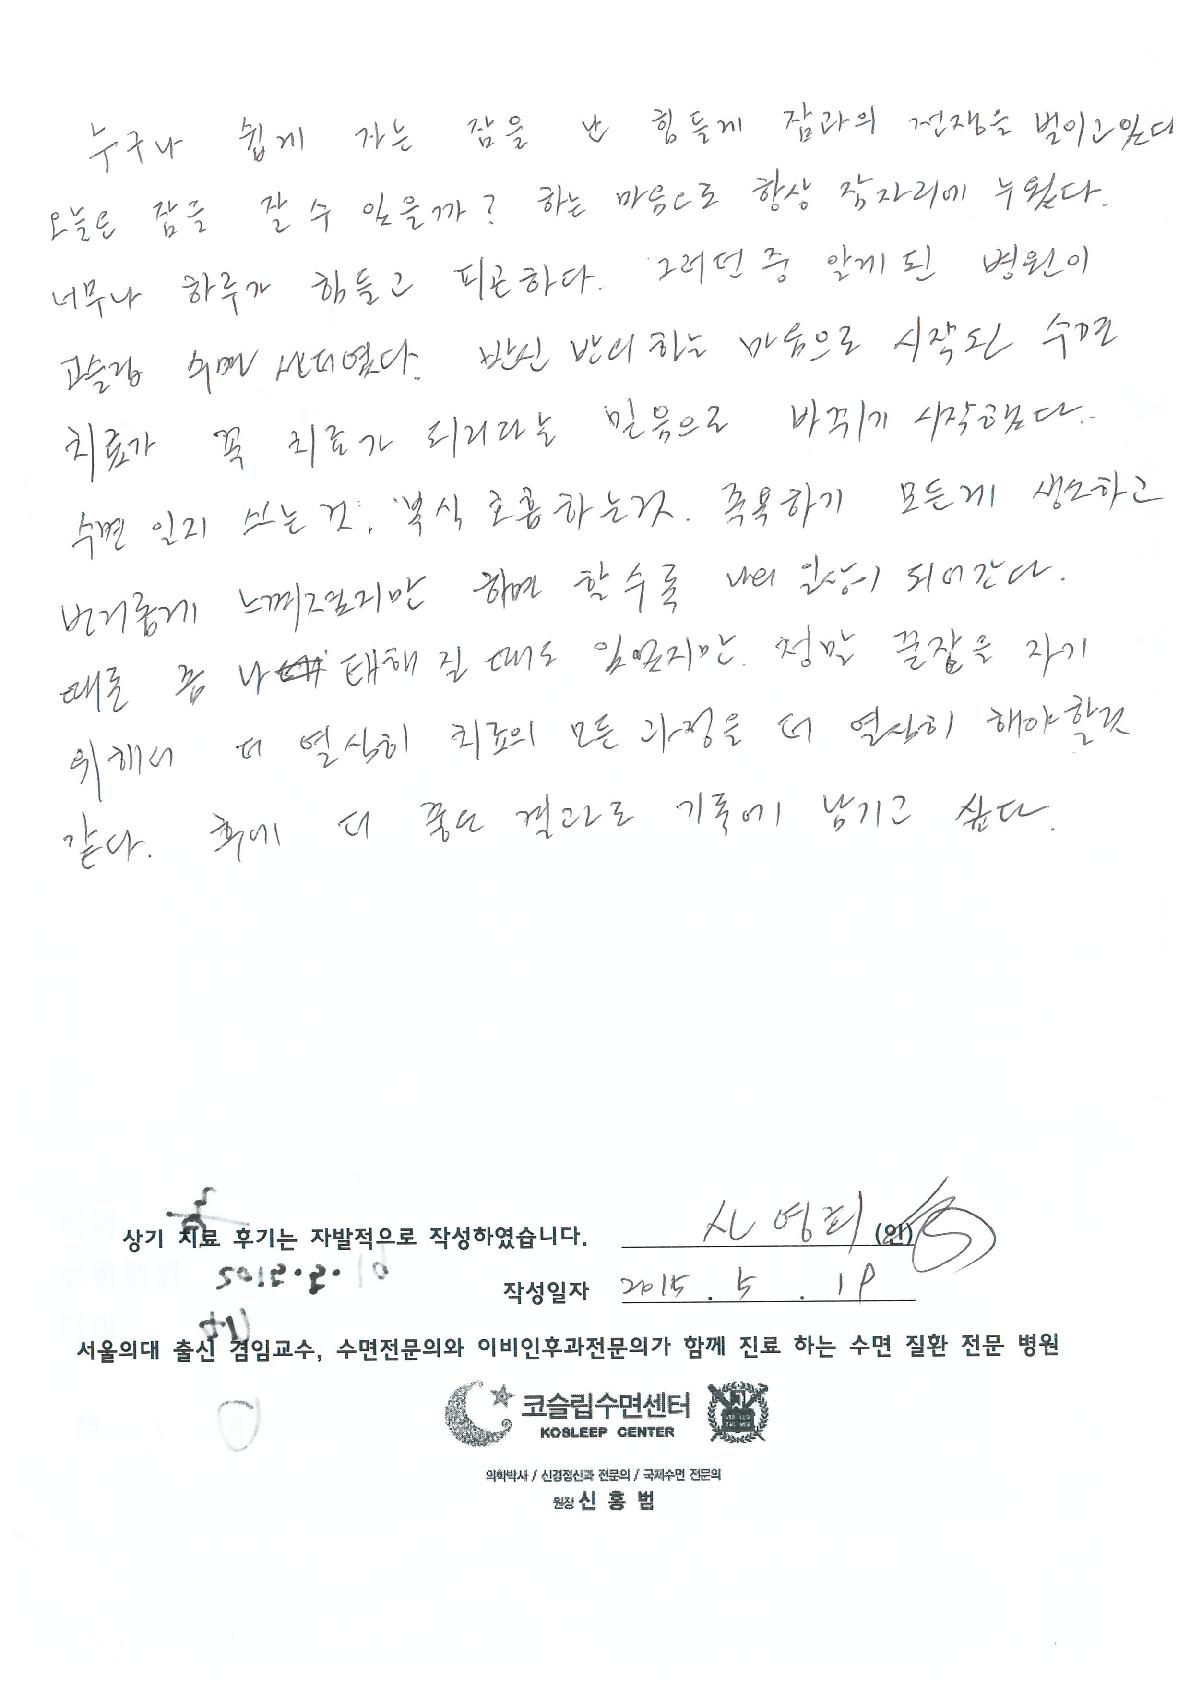 누구나 쉽게 자는 잠을 난 힘들게 잠과의 전쟁을 벌이고있다
오늘은 잠을 잘 수 있을까? 하는 마음으로 항상 잠자리에 누웠다.
너무나 하루가 힘들고 피곤하다. 그러던 중 알게 된 병원이
코슬립 수면 센터였다. 반신 반의 하는 마음으로 시작된 수면
치료가 꼭 치료가 되리라는 믿음으로 바뀌기 시작했다.
수면 일지 쓰는 것, 복식 호흡 하는것. 족욕하기 모든게 생소하고
번거롭게 느껴졌지만 하면 할 수록 나의 일상이 되어간다.
때론 좀 나태해 질 때도 있었지만 정말 꿀잠을 자기
위해서 더 열심히 치료의 모든 과정을 더 열심히 해야 할것
같다. 후에 더 좋은 결과로 기록에 남기고 싶다.
상기 치료 후기는 자발적으로 작성하였습니다. 신영희 (인)
작성일자 2015 . 5 . 19
서울의대 출신 겸임교수, 수면전문의와 이비인후과전문의가 함께 진료 하는 수면 질환 전문 병원
코슬립수면센터
KOSLEEP CENTER
의학박사 / 신경정신과 전문의 / 국제수면 전문의
원장 신 홍 범